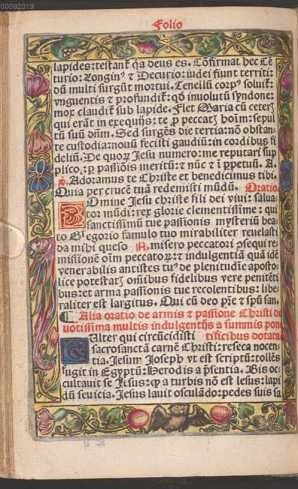 00092019
Folio
lapides: testant͛ q̃a deus es. Cõfirmat hec Cẽ
turio: Longin⁹ ⁊ Decurio: iudei fiunt territi:
dũ multi surgũt mortui. Tenellũ corp⁹ soluit͛:
vnguentis ⁊ profundit͛: q̃ inuolutũ syndone:
mox claudit͛ sub lapide. Flet Maria cũ ceteř
qui erãt in exequijs: te ꝓ peccař hoĩm: sepul
tũ suũ dñm. Sed surgẽs die tertia: nõ obstan
te custodia: nouũ fecisti gaudiũ: in cordibus fi
deliũ. De quoʒ Jesu numero: me reputari sup
plico: ꝓ passiõis meritũ: ⁊ nũc ⁊ ĩ ꝑpetuũ. A.
Adoramus te Christe et benedicimus tibi.
Quia per crucẽ tuã redemisti mũdũ. Oratio
Domine Jesu christe fili dei viui: salua
tor mũdi: rex glorie clementissime: qui
sanctissimũ tue passionis mysteriũ bea
to Gregorio famulo tuo mirabiliter reuelasti
da mihi queso N. misero peccatori ꝓsequi re
missionẽ oĩm peccatoꝝ: ⁊ indulgentiã quã idẽ
venerabilis antistes tu⁹ de plenitudĩe aposto
lice potestatis oĩmibus fidelibus vere peniteti
bus: et arma passionis tue recolentibus: libe
raliter est largitus. Qui cũ deo pr̃e ⁊ spũ san.
Alia oratio de armis ⁊ passione Christi de
uotissima multis indulgentijs a summis pon
Salter qui circũcidisti tificibus dotata
sacrosanctã carnẽ Christi: reseca nocen
tia. Jesum Joseph vt est scriptũ: tollẽs
fugit in Egyptũ: Herod is a p̃sentia. Bis oc
cultauit se Jesus: ep a turbis nõ est lesus: lapi
dũ seuicia. Jesus lauit osculãdo: pedes suis sa